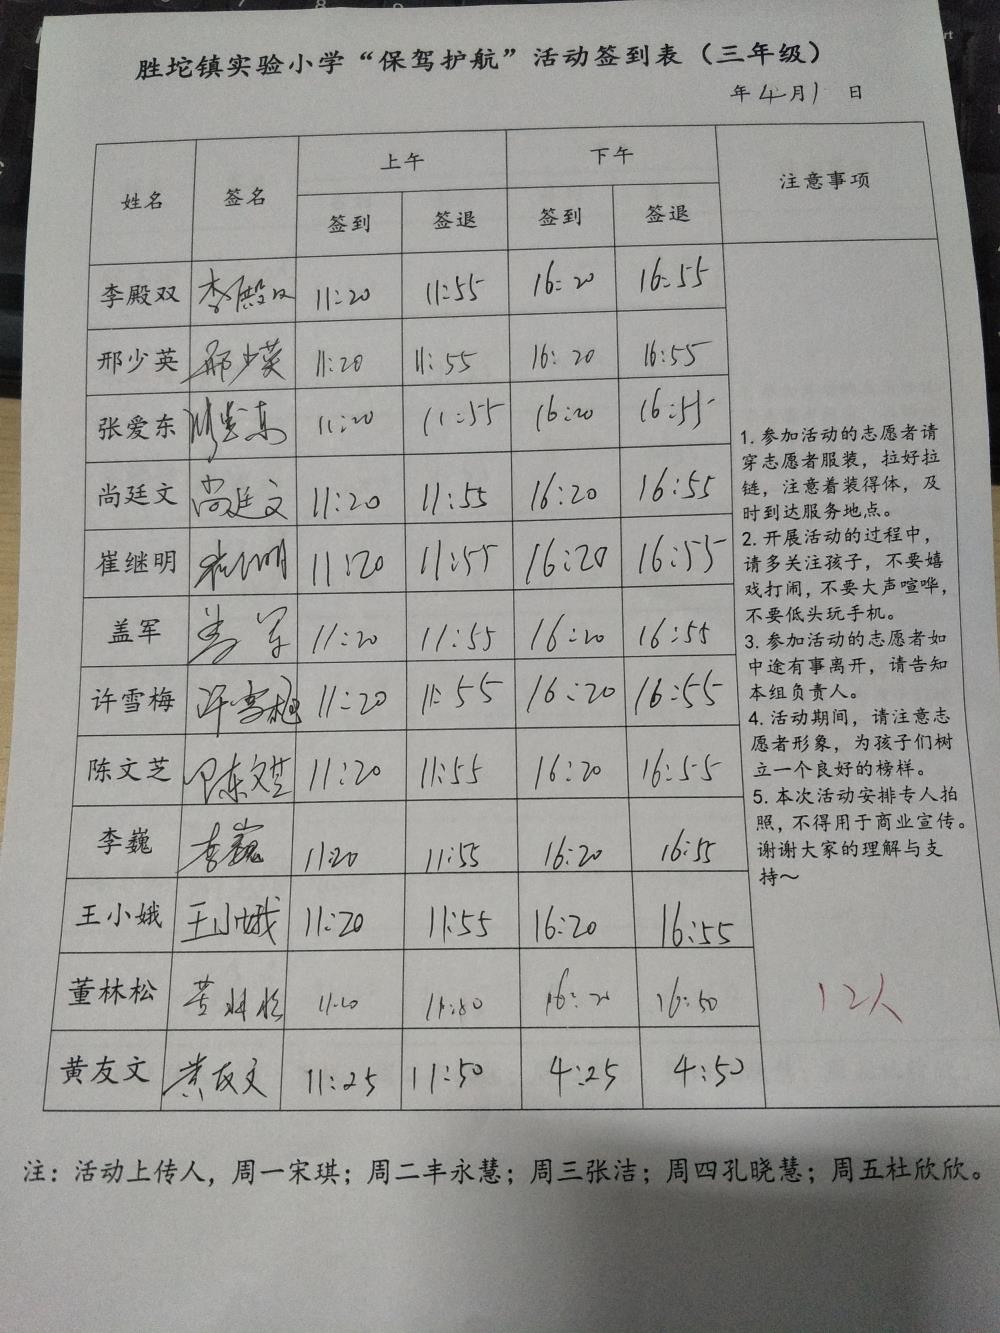 胜坨镇实验小学“保驾护航”活动签到表（三年级）
年4月1日
姓名 签名 上午 下午 注意事项
签到 签退 签到 签退
李殿双 李殿双 11:20 11:55 16:20 16:55
邢少英 邢少英 11:20 11:55 16:20 16:55
张爱东 张爱东 11:20 11:55 16:20 16:55
尚廷文 尚廷文 11:20 11:55 16:20 16:55
崔继明 崔继明 11:20 11:55 16:20 16:55
盖军 盖军 11:20 11:55 16:20 16:55
许雪梅 许雪梅 11:20 11:55 16:20 16:55
陈文芝 陈文芝 11:20 11:55 16:20 16:55
李巍 李巍 11:20 11:55 16:20 16:55
王小娥 王小娥 11:20 11:55 16:20 16:55
董林松 董林松 16:20 16:50
黄友文 黄友文 11:25 11:50 4:25 4:50
1. 参加活动的志愿者请
穿志愿者服装，拉好拉
链，注意着装得体，及
时到达服务地点。
2. 开展活动的过程中，
请多关注孩子，不要嬉
戏打闹，不要大声喧哗，
不要低头玩手机。
3. 参加活动的志愿者如
中途有事离开，请告知
本组负责人。
4. 活动期间，请注意志
愿者形象，为孩子们树
立一个良好的榜样。
5. 本次活动安排专人拍
照，不得用于商业宣传。
谢谢大家的理解与支
持～
12人
注：活动上传人，周一宋琪；周二丰永慧；周三张洁；周四孔晓慧；周五杜欣欣。